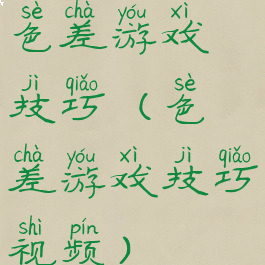 sè chà yóu xì
色差游戏
jì qiǎo sè
技巧（色
chà yóu xì jì qiǎo
差游戏技巧
shì pín
视频）